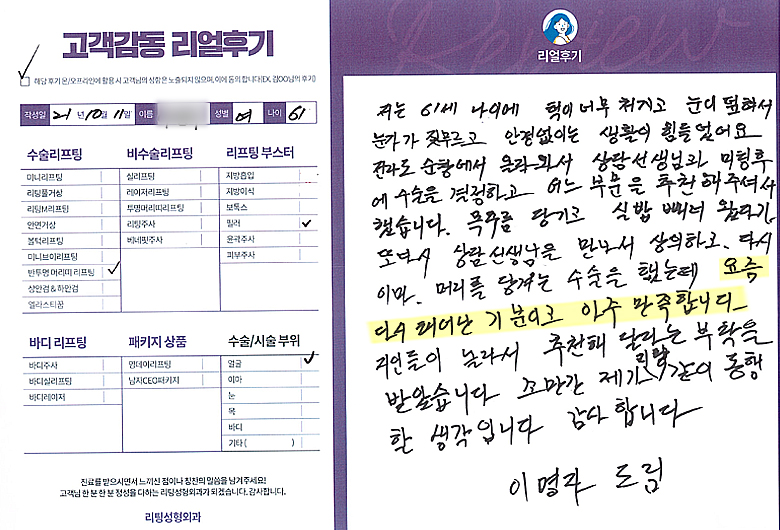 고객감동 리얼후기
해당 후기 온/오프라인에 활용 시 고객님의 성함은 노출되지 않으며, 이에 동의 합니다(EX. 김OO님의 후기)
작성일 21년 10월 11일 이름 성별 여 나이 61
수술리프팅 비수술리프팅 리프팅 부스터
미니리프팅 실리프팅 지방흡입
리팅풀거상 레이저리프팅 지방이식
리팅M리프팅 투명머리띠리프팅 보톡스
안면거상 리팅주사 필러
볼턱리프팅 비네핏주사 윤곽주사
미니브이리프팅 피부주사
반투명 머리띠 리프팅
상안검 & 하안검
엘라스티꿈
바디 리프팅 패키지 상품 수술/시술 부위
바디주사 원데이리프팅 얼굴
바디실리프팅 남자CEO패키지 이마
바디레이저 눈
목
바디
기타 ( )
진료를 받으시면서 느끼신 점이나 칭찬의 말씀을 남겨주세요!
고객님 한 분 한 분 정성을 다하는 리팅성형외과가 되겠습니다. 감사합니다.
리팅성형외과
Review
리얼후기
저는 61세 나이에 턱이 너무 처지고 눈이 덮혀서
눈가가 짖무르고 안경없이는 생활이 힘들었어요
전라도 순창에서 올라와서 상담선생님과 미팅후
에 수술을 결정하고 어느 부분을 추천해주셔서
했습니다. 목주름 당기고 실밥 빼러 왔다가
또다시 상담선생님을 만나서 상의하고. 다시
이마. 머리를 당겨는 수술을 했는데 요즘
다시 태어난 기분이고 아주 만족합니다
지인들이 놀라서 추천해 달라는 부탁을
받았습니다 조만간 제가 리팅 같이 동행
할 생각입니다 감사합니다
이명자 드림